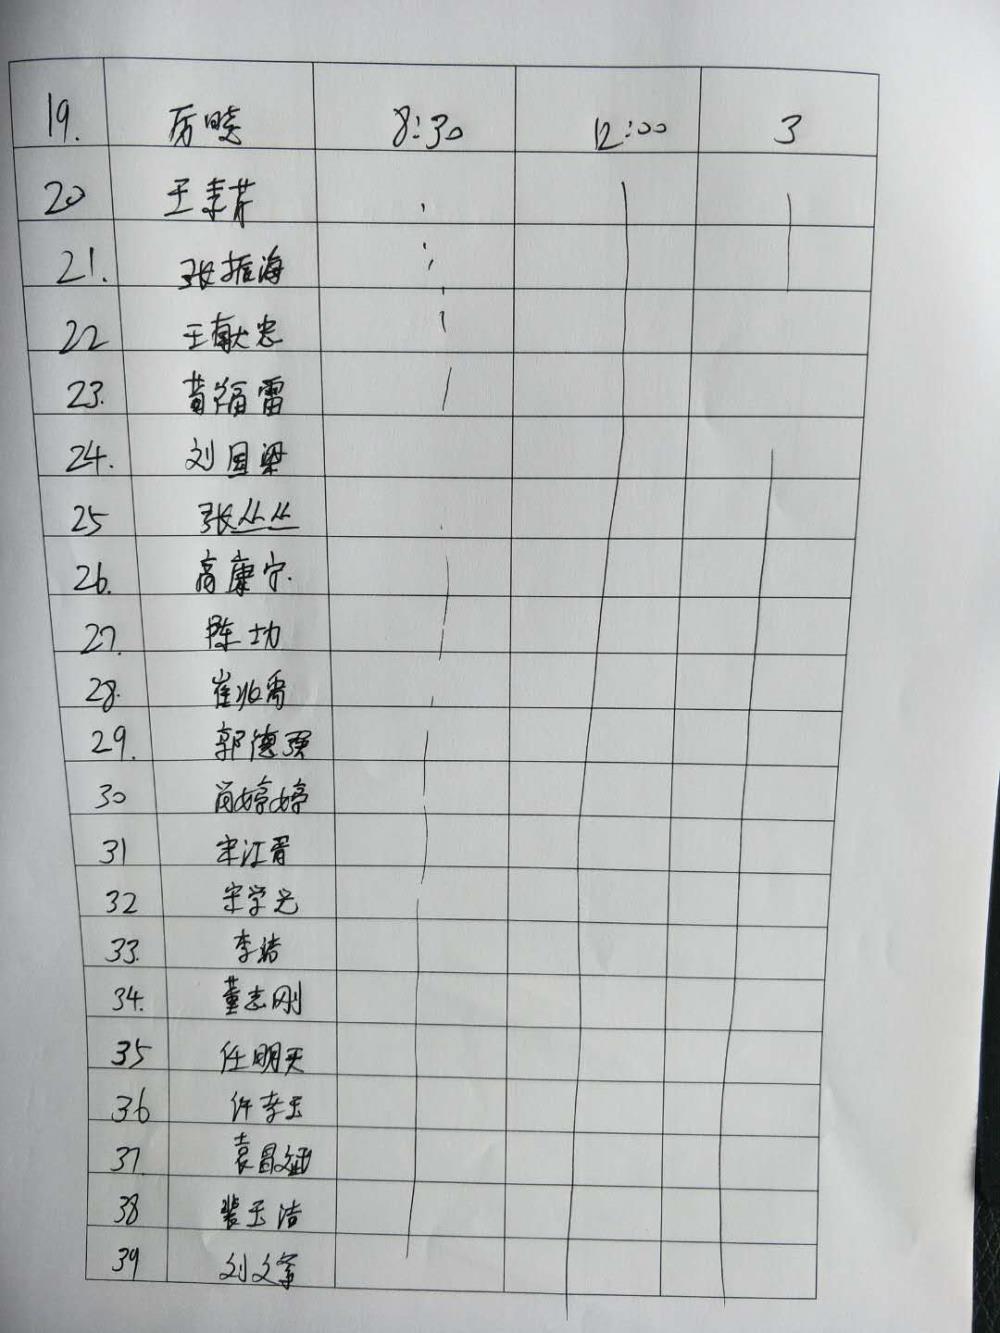 19. 厉晓 8:30 12:00 3
20 王素芹
21. 张振海
22 王献忠
23. 黄福雷
24. 刘国梁
25 张丛丛
26. 高康宁.
27. 陈功
28. 崔兆禹
29. 郭德强
30 尚婷婷
31 宋江胥
32 宋学光
33. 李洁
34. 董志刚
35 任明天
36 许孝玉
37. 袁昌斌
38 裴玉洁
39 刘文